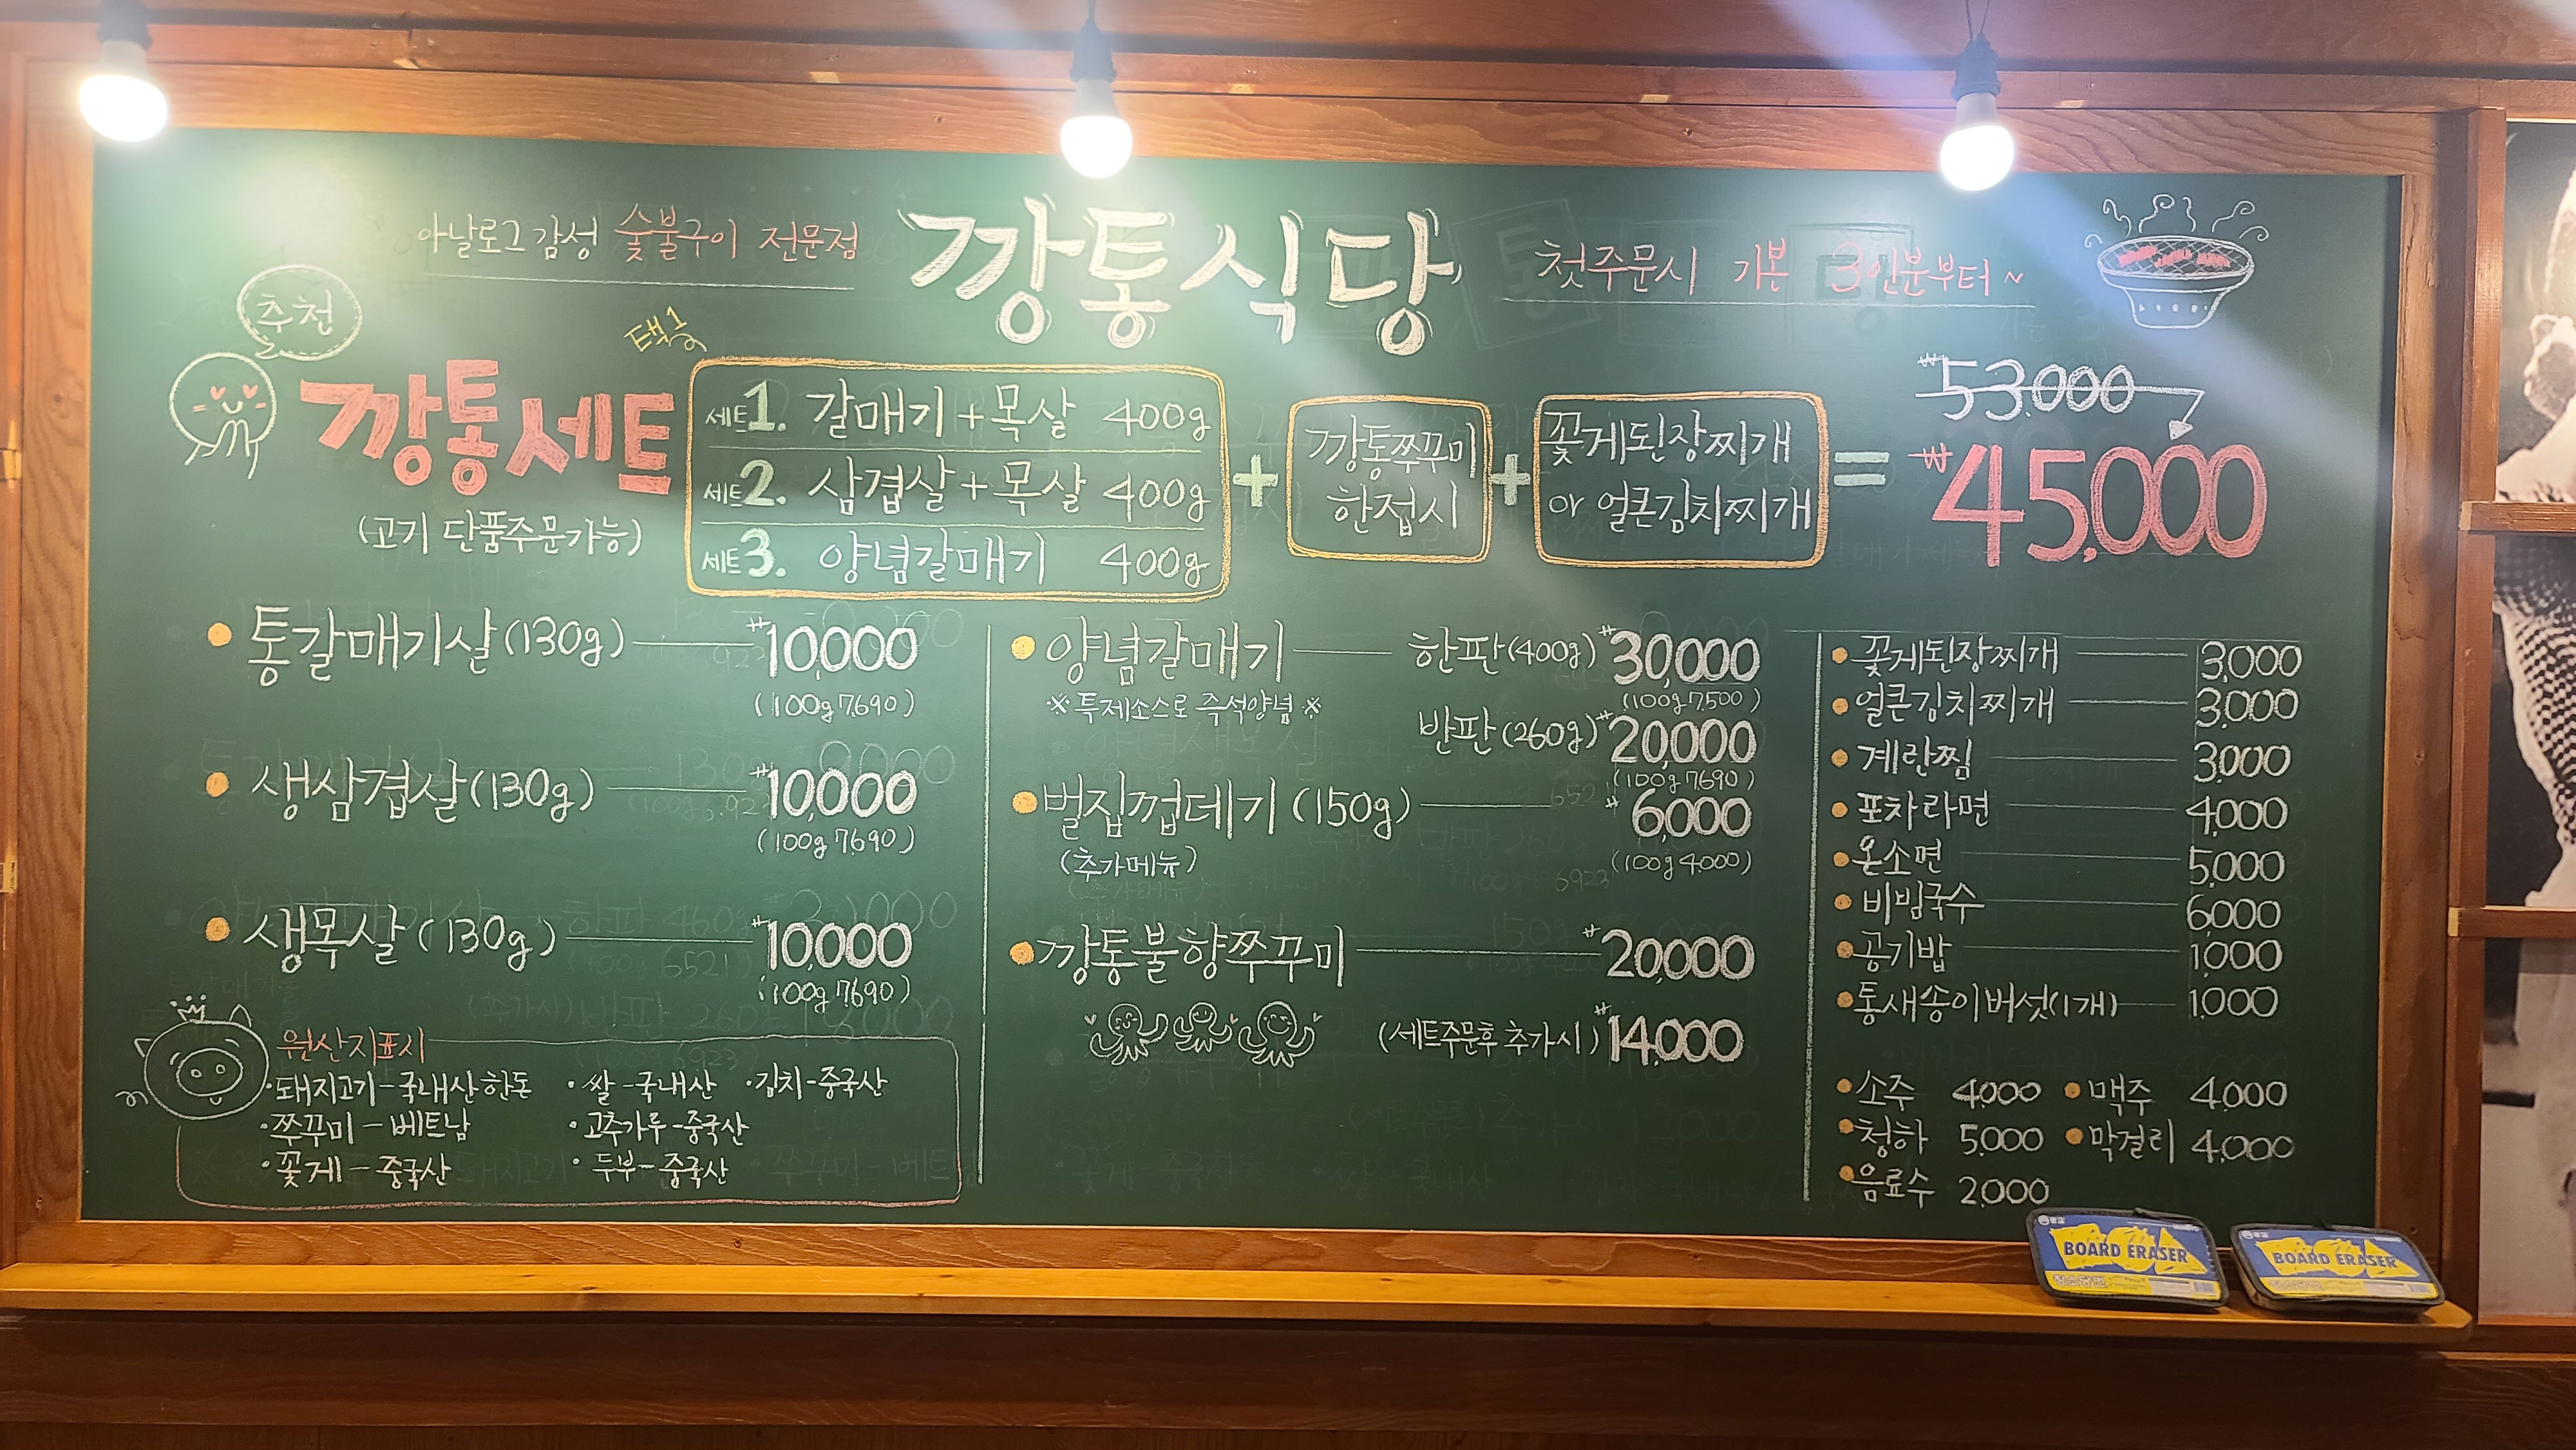 아날로그감성 숯불구이 전문점
깡통식당
첫주문시 기본 3인분부터~
추천
깡통세트
(고기 단품주문가능)
택1
세트1. 갈매기+목살 400g
세트2. 삼겹살+목살 400g
세트3. 양념갈매기 400g
+
깡통쭈꾸미
한접시
+
꽃게된장찌개
or 얼큰김치찌개
=
₩53,000
₩45,000
통갈매기살(130g) ₩10,000
(100g 7,690)
생삼겹살(130g) ₩10,000
(100g 7,690)
생목살(130g) ₩10,000
(100g 7,690)
원산지표시
·돼지고기-국내산한돈 ·쌀-국내산 ·김치-중국산
·쭈꾸미-베트남 ·고추가루-중국산
·꽃게-중국산 ·두부-중국산
양념갈매기 한판(400g) ₩30,000
※특제소스로 즉석양념※ (100g 7,500)
반판(260g) ₩20,000
(100g 7,690)
벌집껍데기(150g) ₩6,000
(추가메뉴) (100g 4,000)
깡통불향쭈꾸미 ₩20,000
(세트주문후 추가시) ₩14,000
꽃게된장찌개 3,000
얼큰김치찌개 3,000
계란찜 3,000
포차라면 4,000
온소면 5,000
비빔국수 6,000
공기밥 1,000
통새송이버섯(1개) 1,000
소주 4,000 맥주 4,000
청하 5,000 막걸리 4,000
음료수 2,000
BOARD ERASER
BOARD ERASER